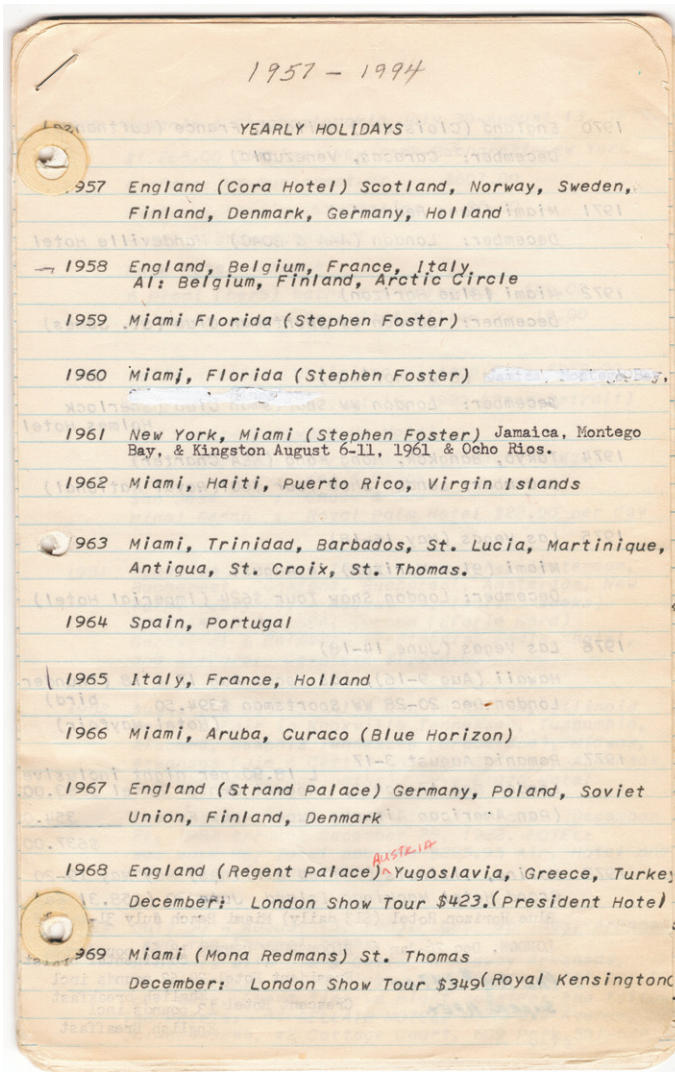 1957 - 1994
YEARLY HOLIDAYS
957 England (Cora Hotel) Scotland, Norway, Sweden,
Finland, Denmark, Germany, Holland
1958 England, Belgium, France, Italy.
Al: Belgium, Finland, Arctic Circle
1959 Miami Florida (Stephen Foster)
1960 Miami, Florida (Stephen Foster)
1961 New York, Miami (Stephen Foster) Jamaica, Montego
Bay, & Kingston August 6-11, 1961 & Ocho Rios.
1962 Miami, Haiti, Puerto Rico, Virgin Islands
963 Miami, Trinidad, Barbados, St. Lucia, Martinique,
Antigua, St. Croix, St. Thomas.
1964 Spain, Portugal
1965 Italy, France, Holland
1966 Miami, Aruba, Curaco (Blue Horizon)
1967 England (Strand Palace) Germany, Poland, Soviet
Union, Finland, Denmark
AUSTRIA
1968 England (Regent Palace) Yugoslavia, Greece, Turkey
December: London Show Tour $423.(President Hotel)
969 Miami (Mona Redmans) St. Thomas
December: London Show Tour $349(Royal Kensington